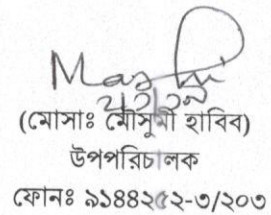 (মোসাঃ মৌসুমী হাবিব)
উপপরিচালক
ফোনঃ ৯১৪৪২৫২-৩/২০৩